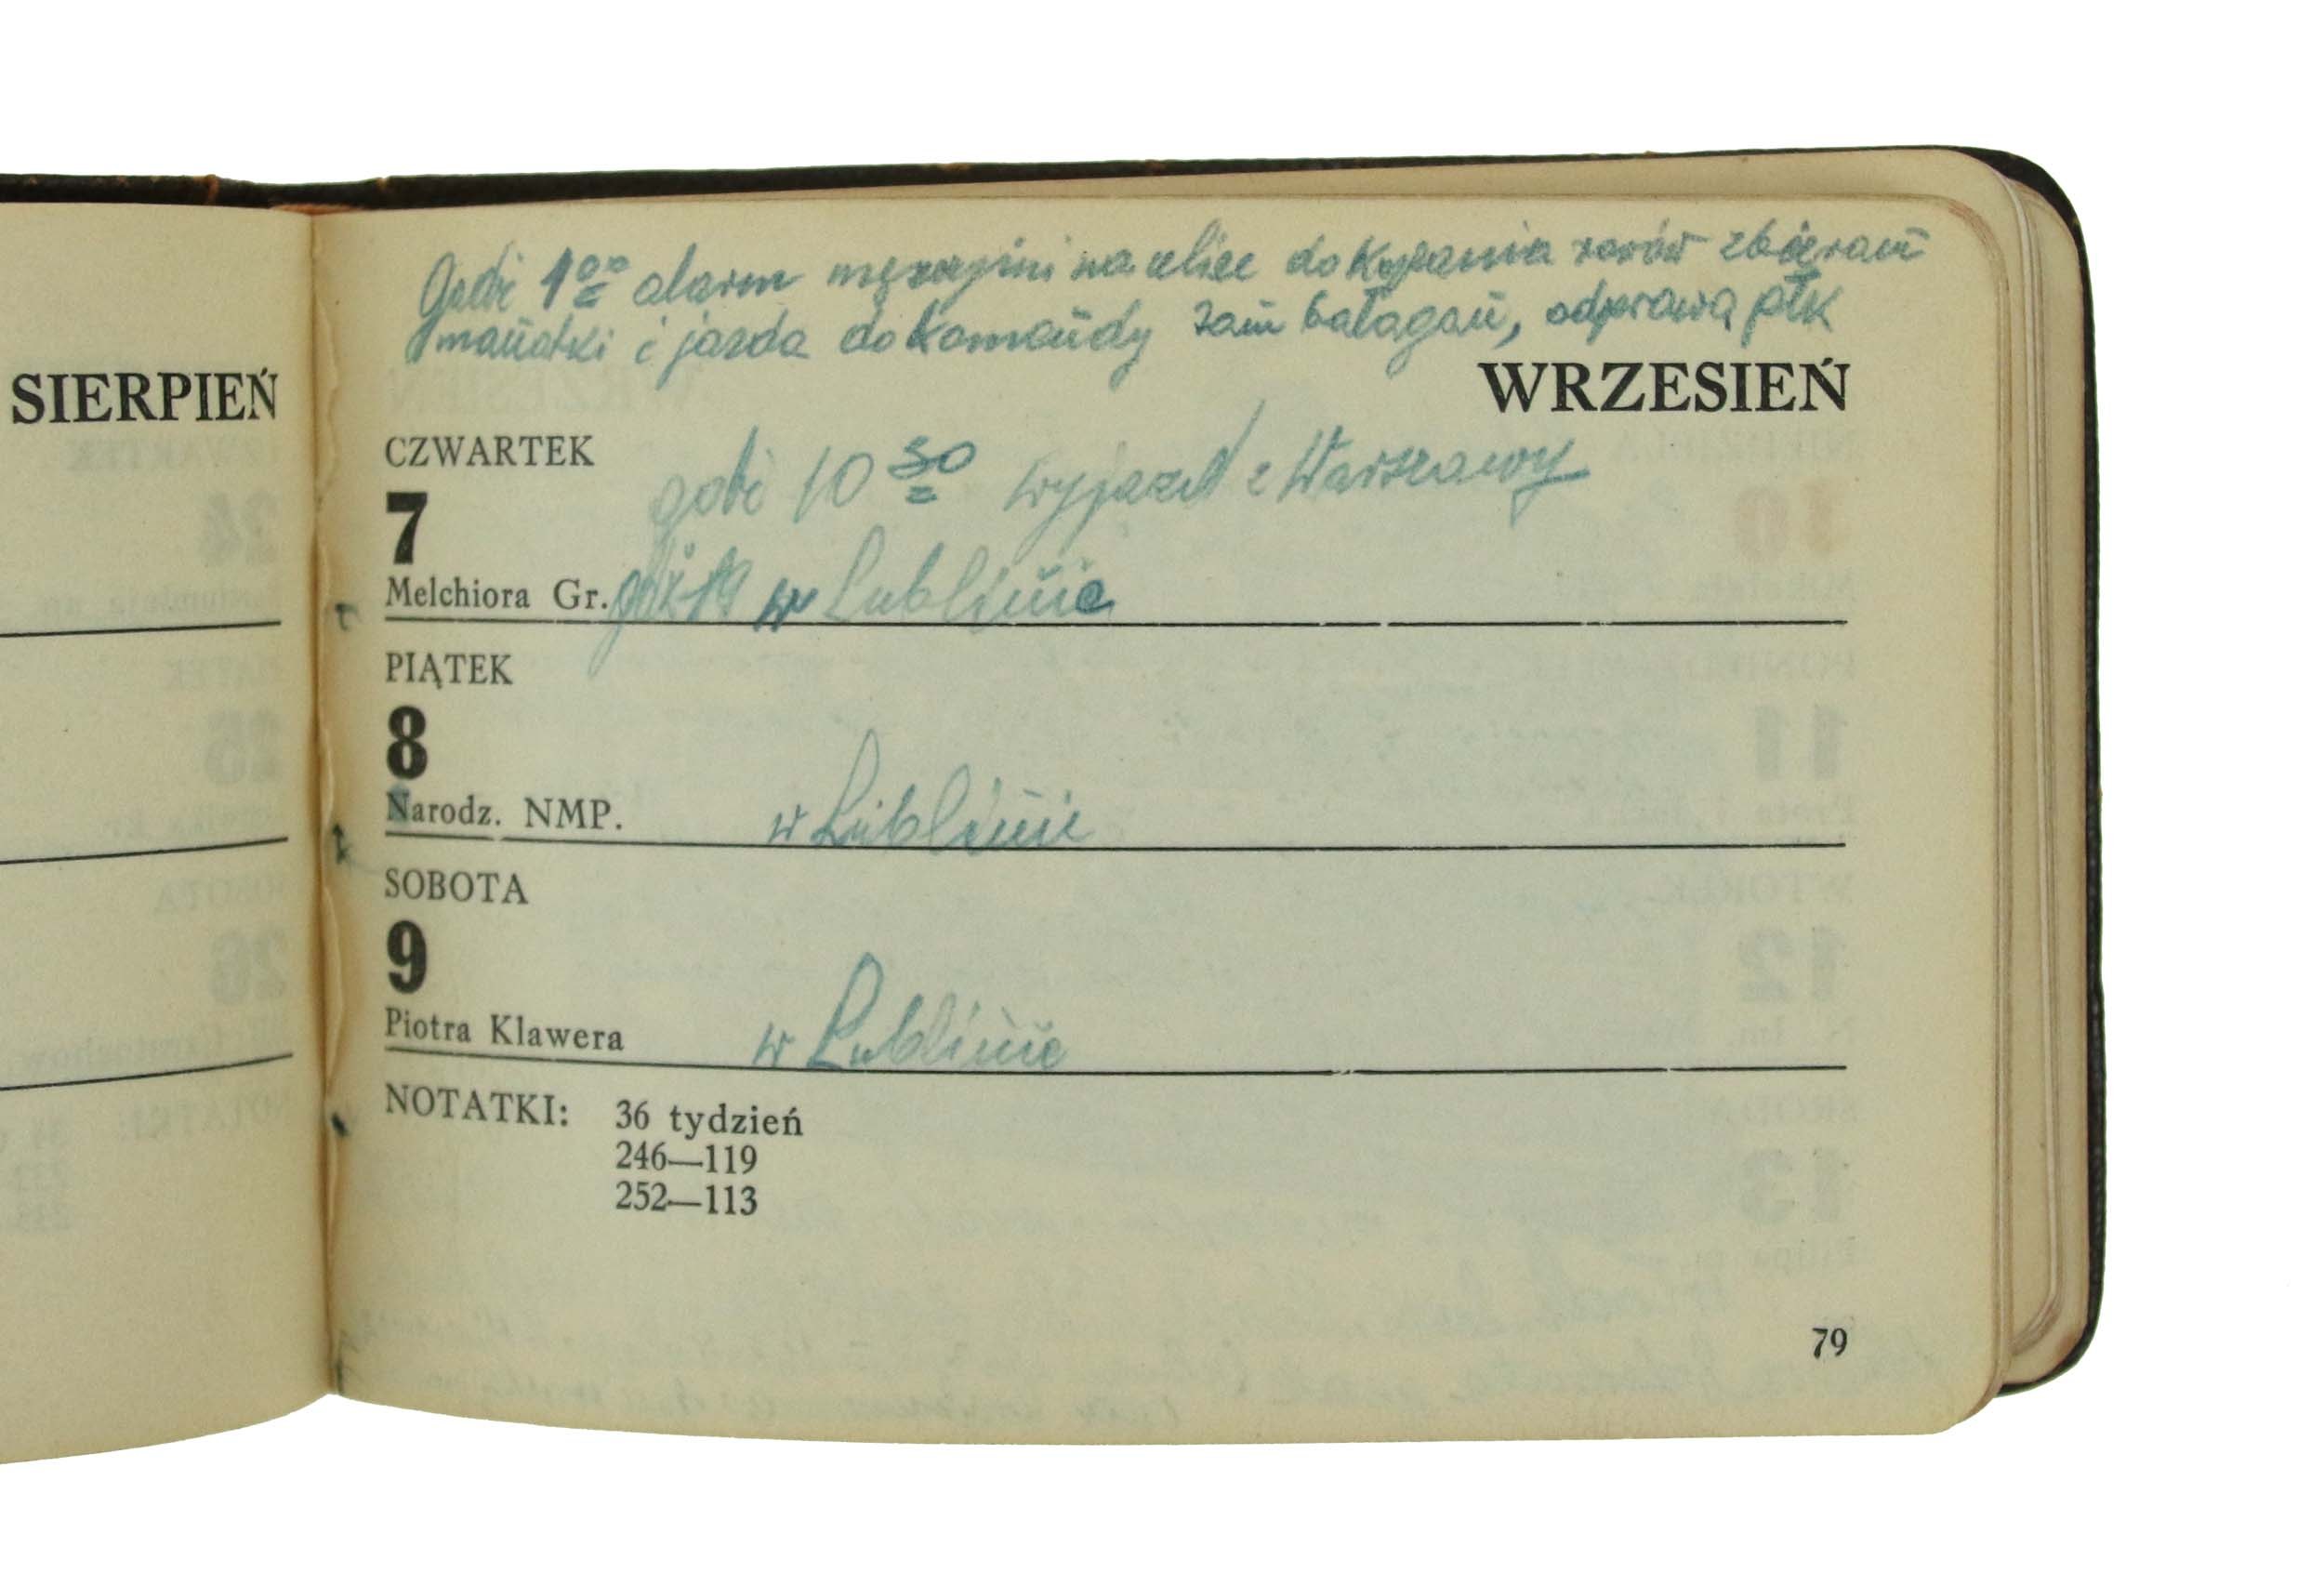 SIERPIEŃ
Godz 1⁰⁰ alarm mężczyźni na ulice do kopania rowów zbieram
manatki i jazda do Komendy tam bałagan, odprawa płk
WRZESIEŃ
CZWARTEK
godz 10³⁰ wyjazd z Warszawy
7
Melchiora Gr. w Lublinie
PIĄTEK
8
Narodz. NMP. w Lublinie
SOBOTA
9
Piotra Klawera w Lublinie
NOTATKI: 36 tydzień
246—119
252—113
79